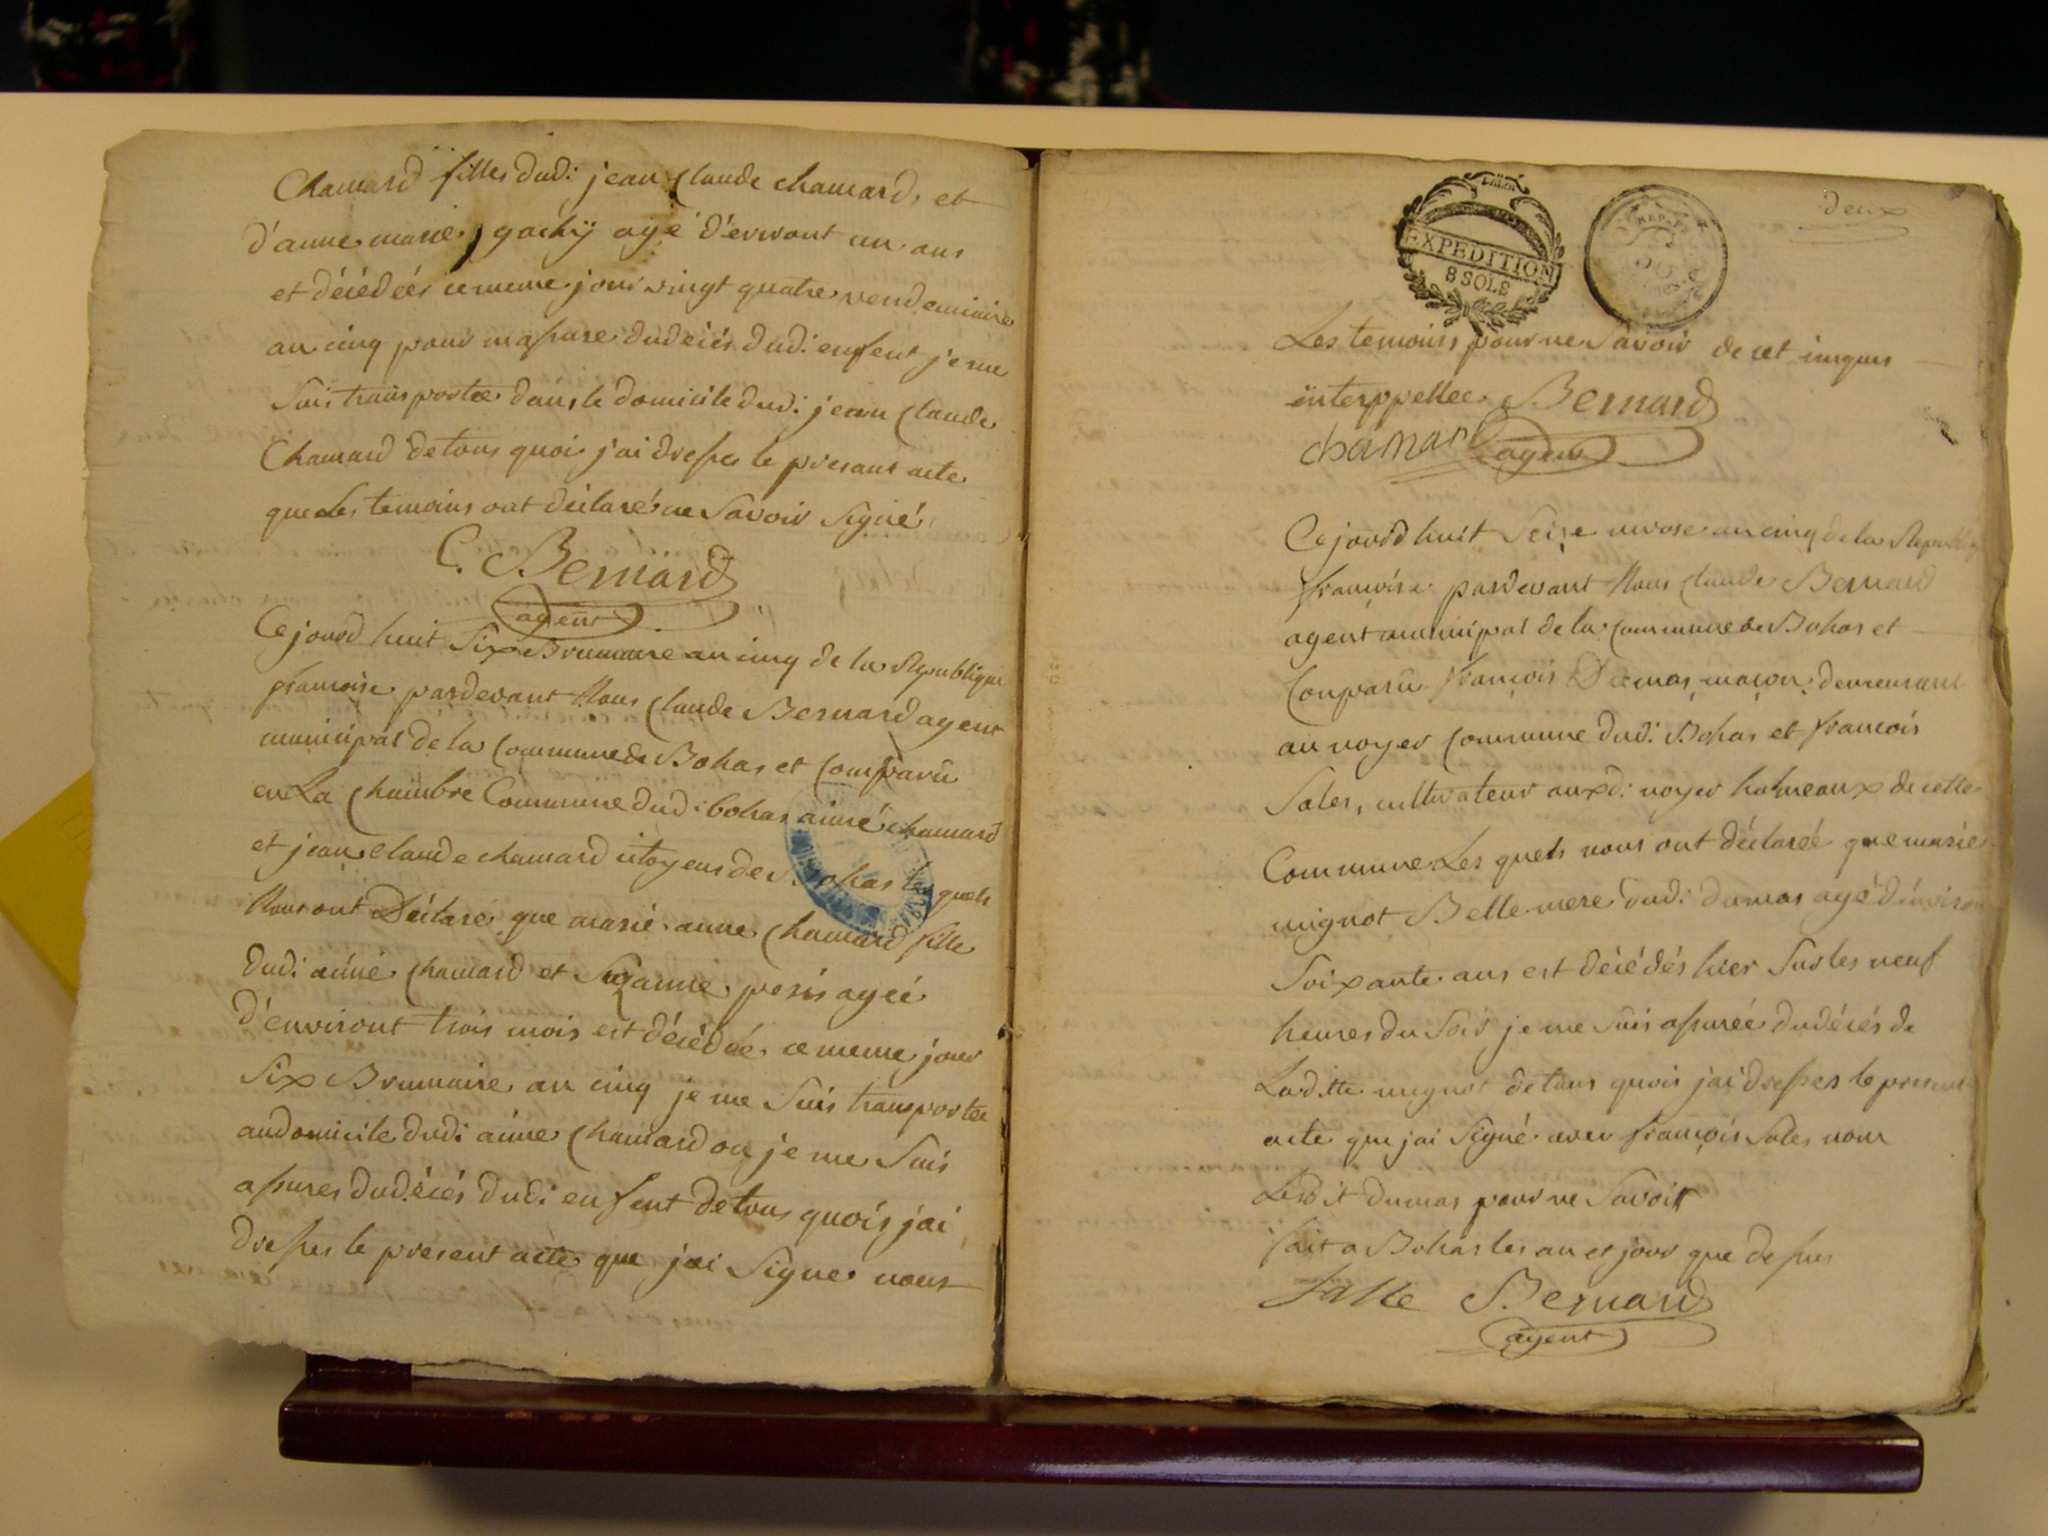 Chamard filles dudi: jean Claude chamard, et
d'anne marie gachÿ agé d'environt un ans
et décédéés ce meme jour vingt quatre vendemiaire
an cinq pour m'assure du décés dudi: enfent je me
suis transportée dans le domicile dudi: jean Claude
Chamard de tous quoi j'ai dresses le presant acte
que les temoins ont déclaré ne savoir signé
C. Bernard
agent
Ce jourd huit six Brumaire an cinq de la Republique
francoise pardevant Nous Claude Bernard agent
municipal de la Commune de Bohas et Comparü
en La Chambre Commune dudi: bohas aimé chamard
et jean claude chamard citoyens de Bohas les quels
Nous ont Déclaré que marie anne Chamard fille
dudi aimé chamard et Suzanne peris ageé
d'environt trois mois est décédéé ce meme jour
Six Brumaire an cinq je me suis transportée
au domicile dudi aime Chamard ou je me suis
assures du décés dudi enfent de tous quois j'ai
dresses le present acte que j'ai signe nous
deux
EXPEDITION
8 SOLS
REP.
Les temoins pour ne savoir de cet
interppellee Bernard
chamard agent
Ce jourd huit Seize nivose an cinq de la Republiq
françoise pardevant Nous Claude Bernard
agent municipal de la Commune de Bohas et
Comparü françois Dumas maçon demeurant
au noyer Commune dudi: Bohas et francois
Sales, cultivateur auxdi: noyer hahmeaux de cette
Commune Les quels nous ont déclaréé que marie
mignot Belle mere dudi: dumas agé d'environ
Soixante ans est décédés hier sur les neuf
heures du Soir je me suis assuréé du décés de
Laditte mignot de tous quois j'ai dresses le present
acte que j'ai signé avec françois Sales non
Ledit dumas pour ne Savoir
fait a Bohas les an et jour que dessus
Salle Bernard
agent